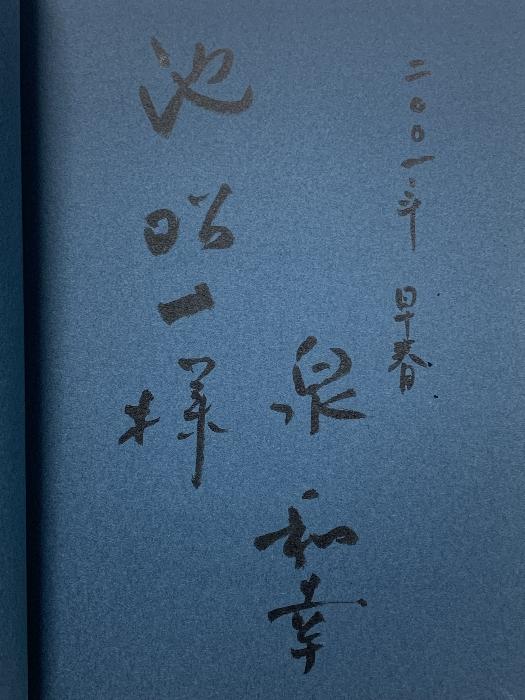 二〇〇一年 早春
泉 和幸
池昭一様